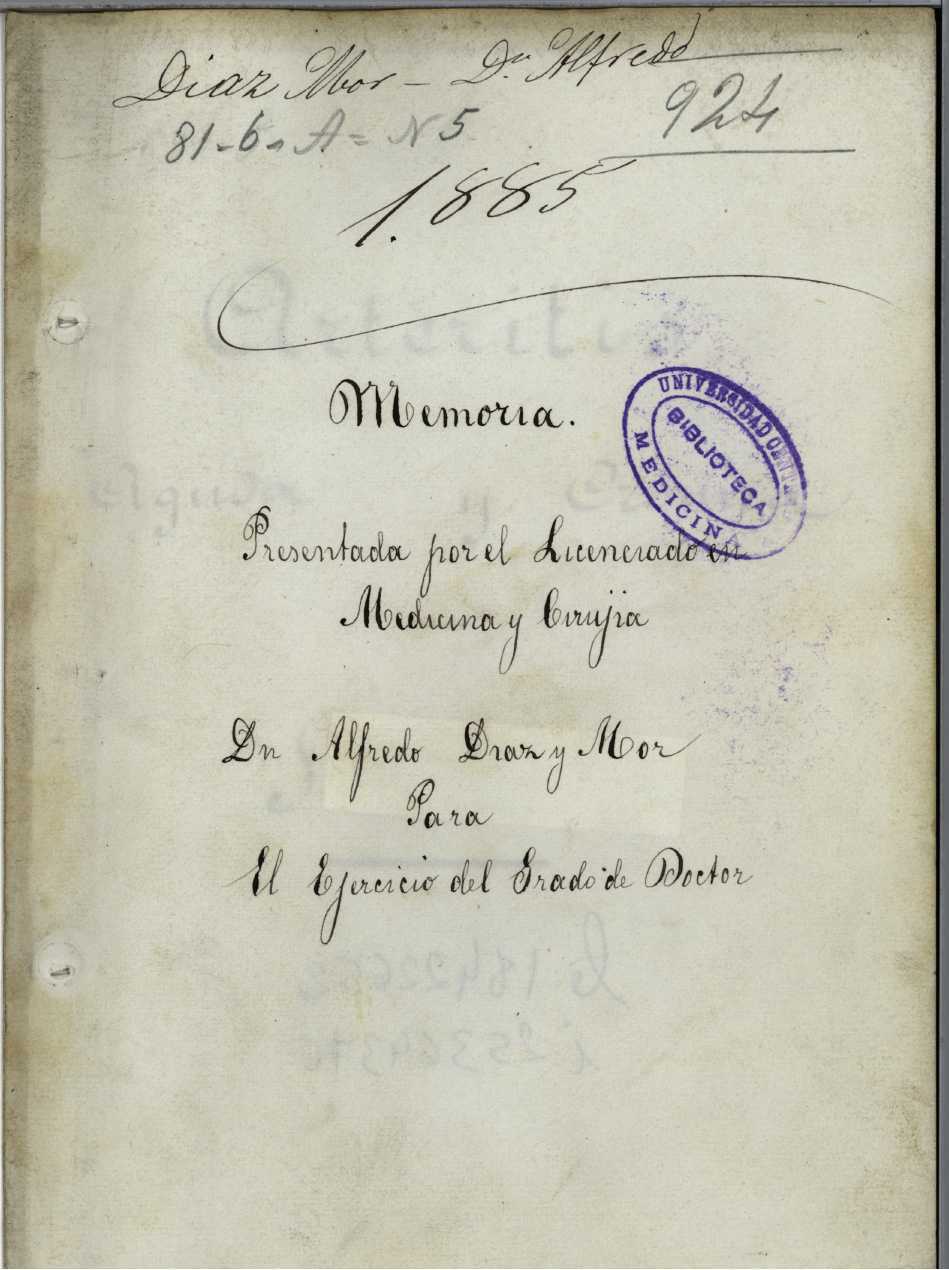 Diaz Mor - Dn Alfredo
924
81-6a A= N 5
1.885
Memoria.
UNIVERSIDAD CENTRAL
BIBLIOTECA
MEDICINA
Presentada por el Licenciado en
Medicina y Cirujia
Dn Alfredo Diaz y Mor
Para
El Ejercicio del Grado de Doctor